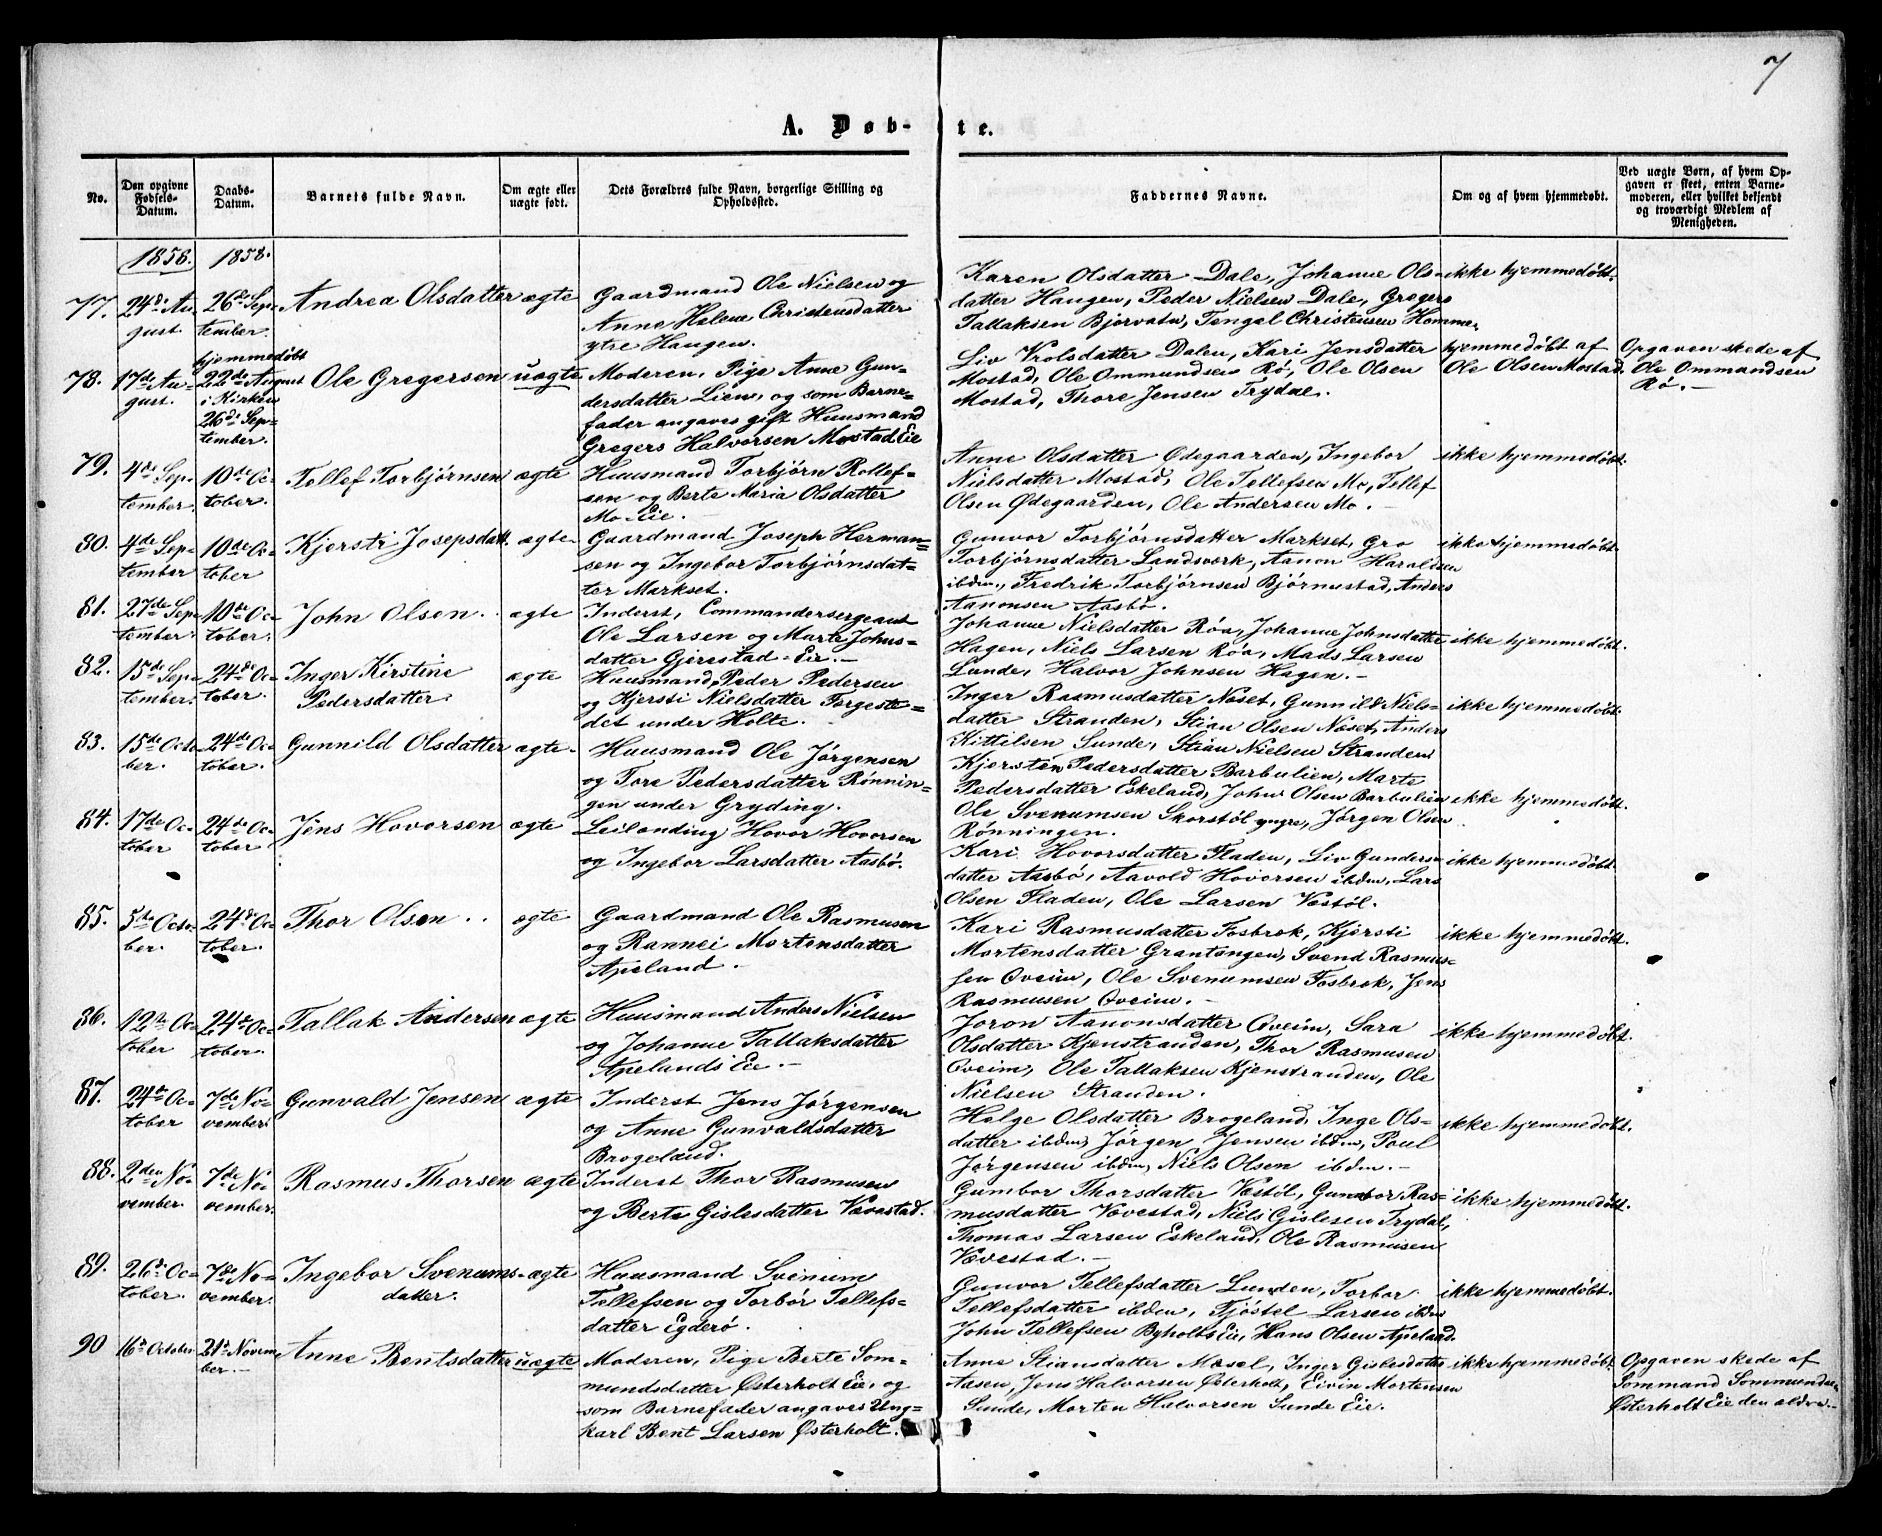 7
A. Døb- te.
No.
Den opgivne Fødsels-Datum.
Daabs-Datum.
Barnets fulde Navn.
Om ægte eller uægte født.
Dets Forældres fulde Navn, borgerlige Stilling og Opholdssted.
Faddernes Navne.
Om og af hvem hjemmedøbt.
Ved uægte Børn, af hvem Opgaven er skeet, enten Barnemoderen, eller hvilket bekjendt og troværdigt Medlem af Menigheden.
1858. 1858.
77. 24de August. 26de September. Andrea Olsdatter ægte
Gaardmand Ole Nielsen og
Anne Helene Christensdatter
ytre Haugen.
Karen Olsdatter Dale, Johanne Ols-
datter Haugen, Peder Nielsen Dale, Gregers
Tallaksen Bjorvatn, Tengel Christensen Homme,
ikke hjemmedøbt.
78. 17de August. hjemmedøbt 22de August i Kirken 26de September. Ole Gregersen uægte
Moderen, Pige Anne Gun-
dersdatter Lien, og som Barne-
fader angaves gift Huusmand
Gregers Halvorsen Mostad Eie
Liv Vrolsdatter Dalen, Kari Jensdatter
Mostad, Ole Ommundsen Rø, Ole Olsen
Mostad, Thore Jensen Trydal.
hjemmedøbt af
Ole Olsen Mostad.
Opgaven skede af
Ole Ommandsen
Rø.
79. 4de September. 10de October. Tellef Torbjørnsen ægte
Huusmand Torbjörn Rollef-
sen og Berte Maria Olsdatter
Mo Eie.
Anne Olsdatter Ødegaarden, Ingebor
Nielsdatter Mostad, Ole Tellefsen Mo, Tellef
Olsen Ødegaarden, Ole Andersen Mo.
ikke hjemmedøbt.
80. 4de September 10de October Kjersti Josepsdatt. ægte
Gaardmand Joseph Herman-
sen og Ingebor Torbjörnsdat-
ter Markset.
Gunvor Torbjörnsdatter Markset, Gro
Torbjörnsdatter Landsværk, Aanon Haroldsen
ibdm, Fredrik Torbjörnsen Bjørnustad, Anders
Aanonsen Aasbö.
ikke hjemmedøbt.
81. 27de September. 10de October. John Olsen. ægte
Inderst, Commandersergeant
Ole Larsen og Marte Johns-
datter Gjerestad-Eie.
Johanne Nielsdatter Röa, Johanne Johnsdatter
Hagen, Niels Larsen Röa, Mads Larsen
Lunde, Halvor Johnsen Hagen.
ikke hjemmedøbt.
82. 15de September. 24de October. Inger Kirstine Pedersdatter ægte
Huusmand, Peder Pedersen
og Kjersti Nielsdatter Torgeste-
det under Holte.
Inger Rasmusdatter Næset, Gunnild Niels-
datter Stranden, Stian Olsen Næset, Anders
Kittilsen Sunde, Stian Nielsen Stranden
ikke hjemmedøbt.
83. 15de October. 24de October. Gunnild Olsdatter ægte
Huusmand Ole Jørgensen
og Tore Pedersdatter Rønnin-
gen under Gryding.
Kjersten Pedersdatter Barbulien, Marte
Pedersdatter Eskeland, John Olsen Barbulien
Ole Svenumsen Skorstöl yngre, Jørgen Olsen
Rønningen.
ikke hjemmedøbt.
84. 17de October 24de October Jens Hovorsen ægte
Leilending Hovor Hovorsen
og Ingebor Larsdatter Aasbø.
Kari Hovorsdatter Fladen, Liv Gunders-
datter Aasbø, Aavold Hovorsen ibdm, Lars
Olsen Fladen, Ole Larsen Vestöl.
ikke hjemmedøbt.
85. 5te October. 24de October. Thor Olsen ægte
Gaardmand Ole Rasmusen
og Rannei Mortensdatter
Apeland.
Kari Rasmusdatter Fosbrok, Kjersti
Mortensdatter Grantangen, Svend Rasmus-
sen Oveim, Ole Svenumsen Fosbrok, Jens
Rasmusen Oveim.
ikke hjemmedøbt.
86. 12te October 24de October. Tallak Andersen ægte
Huusmand Anders Nielsen
og Johanne Tallaksdatter
Apelands Eie.
Joron Aanonsdatter Oveim, Sara
Olsdatter Kjenstranden, Thor Rasmusen
Oveim, Ole Tallaksen Kjenstranden, Ole
Nielsen Stranden.
ikke hjemmedøbt.
87. 24de October 7de November. Gunvald Jensen ægte
Inderst Jens Jørgensen
og Anne Gunvaldsdatter
Brogeland.
Helge Olsdatter Brogeland, Inge Ols-
datter ibdm, Jörgen Jensen ibdm, Poul
Jørgensen ibdm, Niels Olsen ibdm.
ikke hjemmedøbt.
88. 2den November. 7de November. Rasmus Thorsen ægte
Inderst Thor Rasmusen
og Berte Gislesdatter Vævestad.
Gumbor Thorsdatter Vestöl, Gunbor Ras-
musdatter Vævestad, Niels Gislesen Trydal,
Thomas Larsen Eskeland, Ole Rasmusen
Vævestad.
ikke hjemmedøbt.
89. 26de October. 7de November. Ingebor Svenums-datter. ægte
Huusmand Svenum
Tellefsen og Torbör Tellefs-
datter Egderö.
Gunvor Tellefsdatter Lunden, Torbor
Tellefsdatter ibdm, Fjöstel Larsen ibdm
John Tellefsen Byholts Eie, Hans Olsen Apeland.
ikke hjemmedøbt.
90 16de October 21de November. Anne Bentsdatter uægte
Moderen, Pige Berte Som-
mundsdatter Østerholt Eie, og
som Barnefader angaves Ung-
karl Bent Larsen Østerholt.
Anne Stiansdatter Mæsel, Inger Gislesdatter
Aasen, Jens Halvorsen Østerholt, Eivin Mortensen
Sunde, Morten Halvorsen Sunde Eie.
ikke hjemmedøbt
Opgaven skede af
Sommund Sommundsen
Østerholt Eie den ældre.